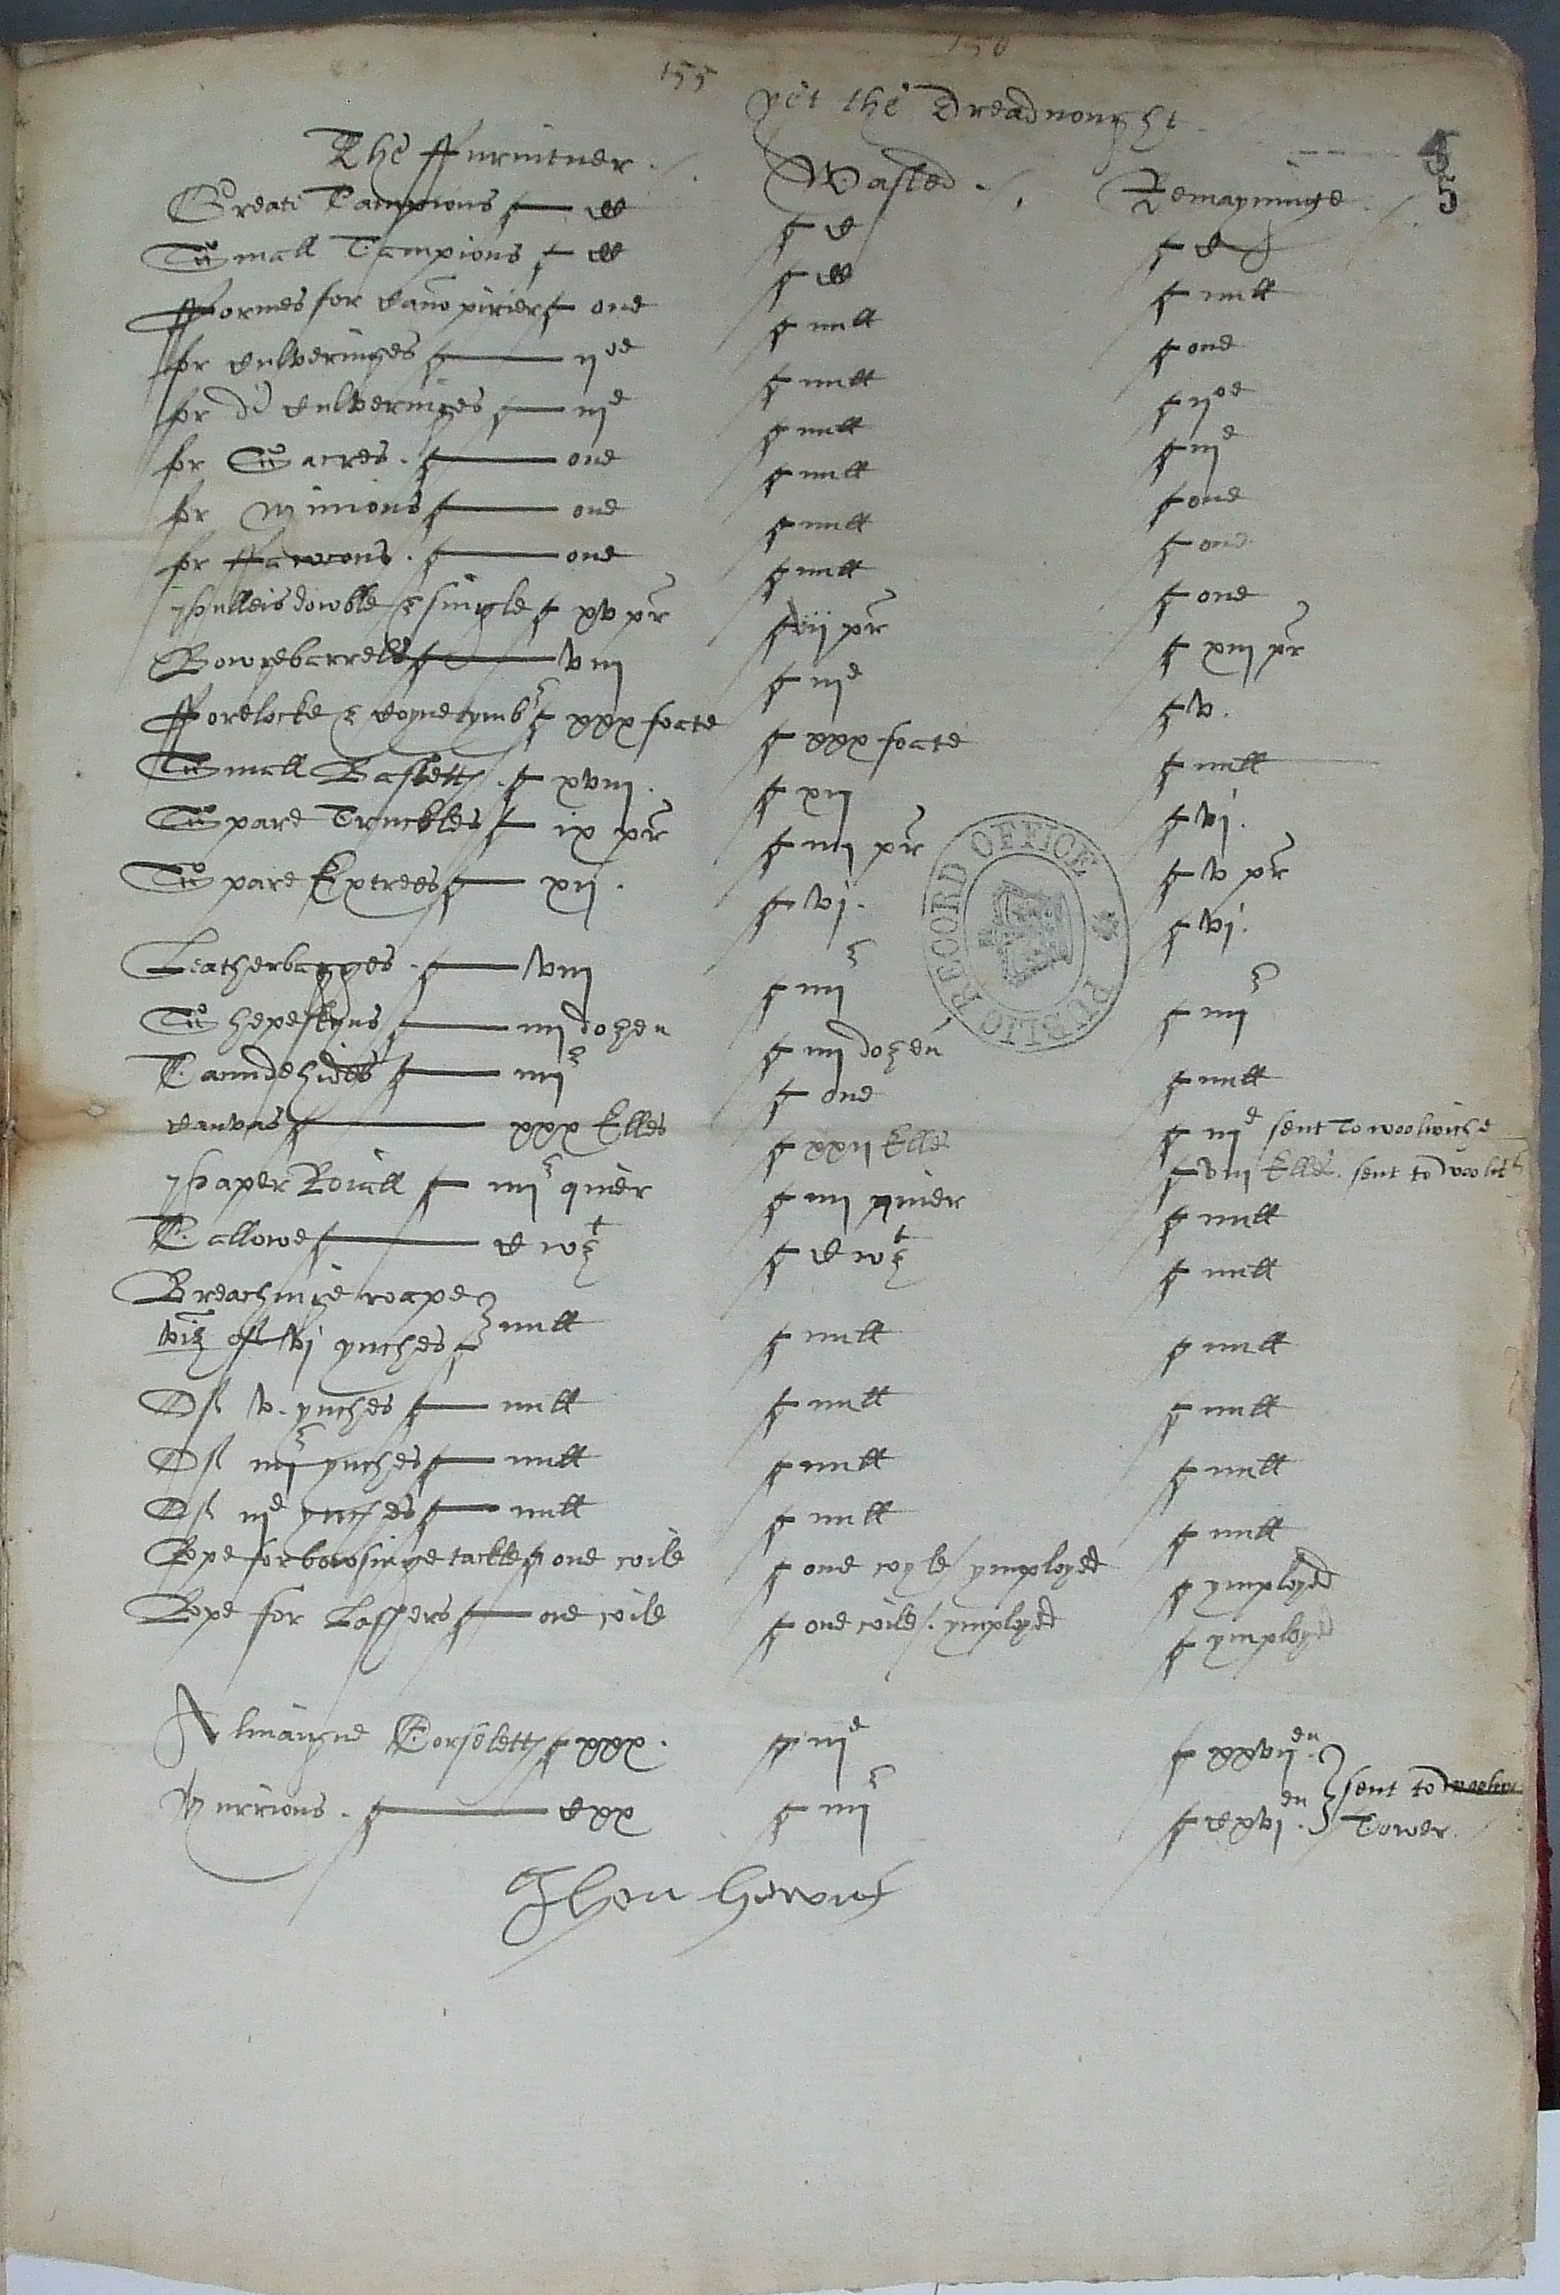 155 156
yet the Dreadnought
5
The ffurnituer Wasted Remayninge
Greate Tampions — CC C C
Small Tampions CC CC null
fformes for Canno pirier one null one
for Culveringes — ij oe null ij oe
for di Culveringes — iij e null iij e
for Sacres — one null one
for Minions — one null one
for ffawcons — one null one
Pulleis dowble & single xv pr ij pr xiij pr
Bowgebarrells — viij iij e v
fforelocke & Coyne tymb xxx foote xxx foote null
Small Baskett xviij xij vj
Spare Truckles ix pr iiij pr v pr
Spare Extrees — xij vj vj
Leatherbagges — viij iiij iiij
Shepeskyns — iiij dozen iiij dozen null
Tannde hides — iiij one iij e sent To woolwiche
Canvas — xxx Elles xxij Elles viij Elles sent to woolwch
Paper Roiall iiij quier iiij quier null
Tallowe — C wt C wt null
Breachinge roape
viz of vj ynches null null null
Of v ynches — null null null
Of iiij ynches — null null null
Of iij e ynches — null null null
Rope for bowsinge tackle one coile one coyle ymployed ymployed
Rope for Lassers — one coile one coile ymployed ymployed
Almaigne Corselett xxx iij e xxvij en
Murrions — Cxx iiij Cxvj en sent to
Tower
Jhon
PUBLIC RECORD OFFICE